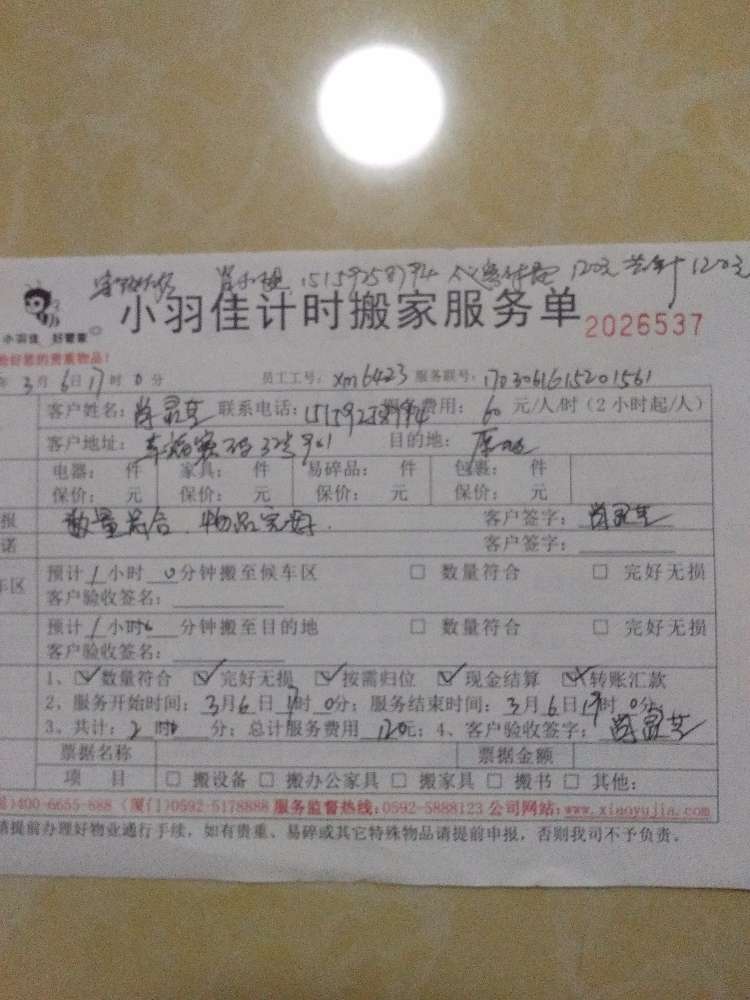 15159258794 120元 120元
小羽佳 好管家
小羽佳计时搬家服务单 2026537
您的贵重物品!
年 3月 6日 17时 0分 员工工号: xm6423 服务联号: 1703061615201561
客户姓名: 联系电话: 15159258794 服务费用: 60 元/人/时(2小时起/人)
客户地址: 目的地:
电器: 件 家具: 件 易碎品: 件 包裹: 件
保价: 元 保价: 元 保价: 元 保价: 元
报 数量符合、物品完好. 客户签字:
诺 客户签字:
预计 1 小时 0 分钟搬至候车区 □ 数量符合 □ 完好无损
车区 客户验收签名:
预计 1 小时 0 分钟搬至目的地 □ 数量符合 □ 完好无损
客户验收签名:
1、☑数量符合 ☑完好无损 ☑按需归位 ☑现金结算 转账汇款
2、服务开始时间: 3月 6日 17时 0分; 服务结束时间: 3月 6日 19时 0分;
3、共计: 2 时0 分; 总计服务费用 120元; 4、客户验收签字:
票据名称 票据金额
项 目 □ 搬设备 □ 搬办公家具 □ 搬家具 □ 搬书 □ 其他:
)400-6655-888 (厦门)0592-5178888 服务监督热线:0592-5888123 公司网站:www.xiaoyujia.com
请提前办理好物业通行手续,如有贵重、易碎或其它特殊物品请提前申报,否则我司不予负责。